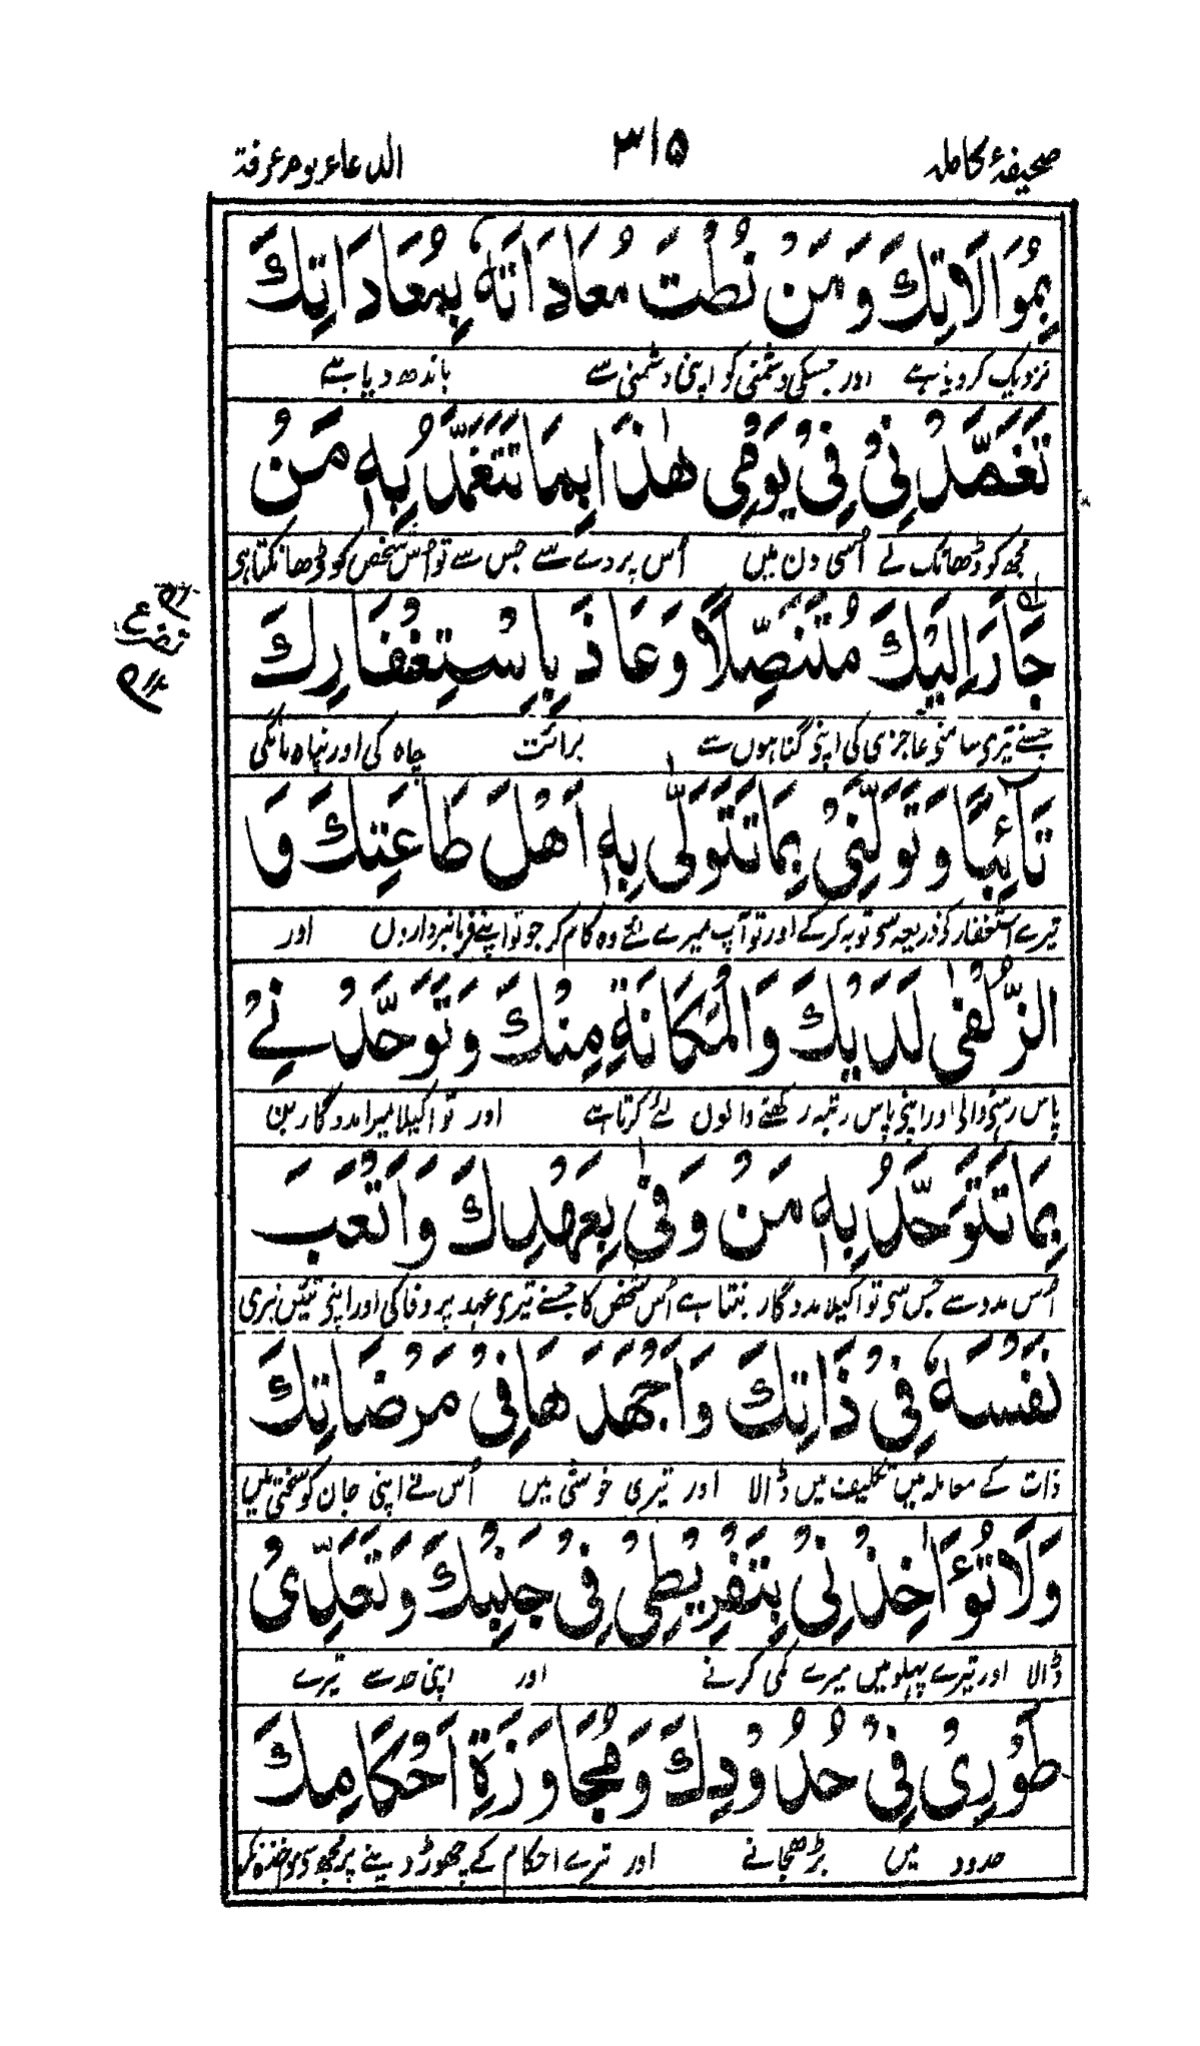 صحیفۂ کاملہ
۳۱۵
الدعاء یوم عرفة
بِمُوَالَاتِكَ وَمَنْ نُطْتَ مُعَادَاتَهٗ بِمُعَادَاتِكَ
نزدیک کر دیا ہے اور جسکی دشمنی کو اپنی دشمنی سے باندھ دیا ہے
تَغَمَّدْنِیْ فِیْ یَوْمِیْ هٰذَا بِمَا تَتَغَمَّدُ بِهٖ مَنْ
مجھ کو ڈھانک لے اُسی دن میں اُس پردے سے جس سے تو اُس شخص کو ڈھانکتا ہی
جَأَرَ اِلَیْكَ مُتَنَصِّلًا وَعَاذَ بِاسْتِغْفَارِكَ
جسنے تیری سامنی عاجزی کی اپنی گناہوں سے برائت چاہ کی اور پناہ مانگی
تَآئِبًا وَتَوَلَّنِیْ بِمَا تَتَوَلّٰی بِهٖ اَهْلَ طَاعَتِكَ وَ
تیرے استغفار کی ذریعہ سی توبہ کر کے اور تو آپ میرے لئے وہ کام کر جو تو اپنے فرمانبرداروں اور
الزُّلْفٰی لَدَیْكَ وَالْمَكَانَةِ مِنْكَ وَتَوَحَّدْنِیْ
پاس رہنی والی اور اپنی پاس رتبہ رکھنے والوں لئے کرتا ہے اور تو اکیلا میرا مددگار بن
بِمَا تَتَوَحَّدُ بِهٖ مَنْ وَفٰی بِعَهْدِكَ وَاَتْعَبَ
اُس مدد سے جس سی تو اکیلا مددگار بنتا ہے اُس شخص کا جسنے تیری عہد پر وفا کی اور اپنی تئیں تیری
نَفْسَهٗ فِیْ ذَاتِكَ وَاَجْهَدَهَا فِیْ مَرْضَاتِكَ
ذات کے معاملہ میں تکلیف میں ڈالا اور تیری خوشی میں اُس نے اپنی جان کو سختی میں
وَلَا تُؤَاخِذْنِیْ بِتَفْرِیْطِیْ فِیْ جَنْبِكَ وَتَعَدِّیْ
ڈالا اور تیرے پہلو میں میرے کمی کرنے اور اپنی حد سے تیرے
طَوْرِیْ فِیْ حُدُوْدِكَ وَمُجَاوَزَةِ اَحْكَامِكَ
حدود میں بڑھجانے اور ترے احکام کے چھوڑ دینے پر مجھ سی مواخذہ نہ کر